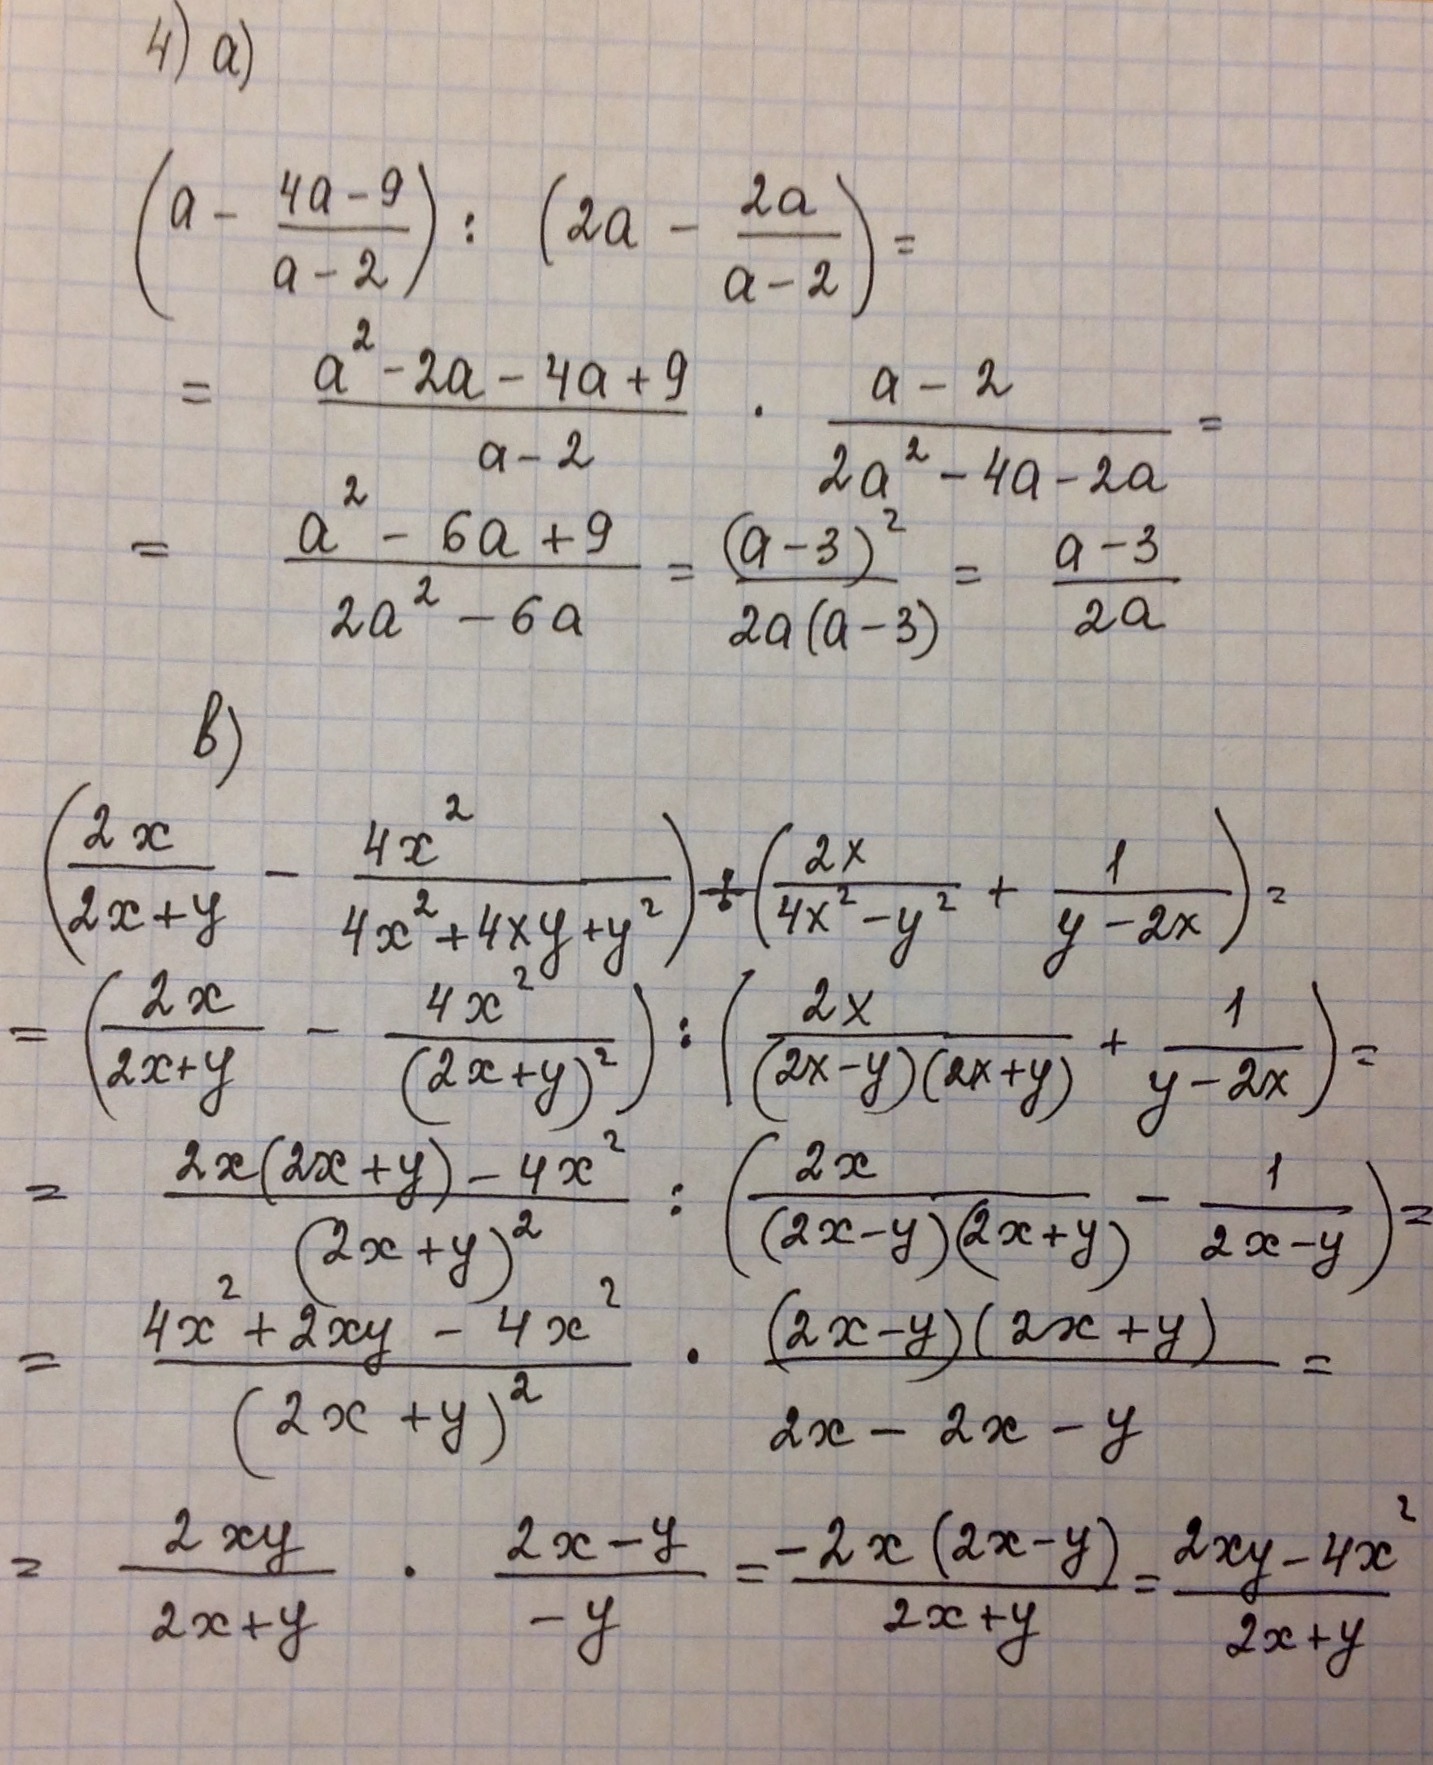 4) а)
(a - (4a-9)/(a-2)) : (2a - 2a/(a-2)) =
= (a²-2a-4a+9)/(a-2) · (a-2)/(2a²-4a-2a) =
= (a²-6a+9)/(2a²-6a) = (a-3)²/(2a(a-3)) = (a-3)/(2a)
в)
(2x/(2x+y) - 4x²/(4x²+4xy+y²)) : (2x/(4x²-y²) + 1/(y-2x)) =
= (2x/(2x+y) - 4x²/(2x+y)²) : (2x/((2x-y)(2x+y)) + 1/(y-2x)) =
= (2x(2x+y)-4x²)/(2x+y)² : (2x/((2x-y)(2x+y)) - 1/(2x-y)) =
= (4x²+2xy-4x²)/(2x+y)² · ((2x-y)(2x+y))/(2x-2x-y) =
= 2xy/(2x+y) · (2x-y)/(-y) = -2x(2x-y)/(2x+y) = (2xy-4x²)/(2x+y)